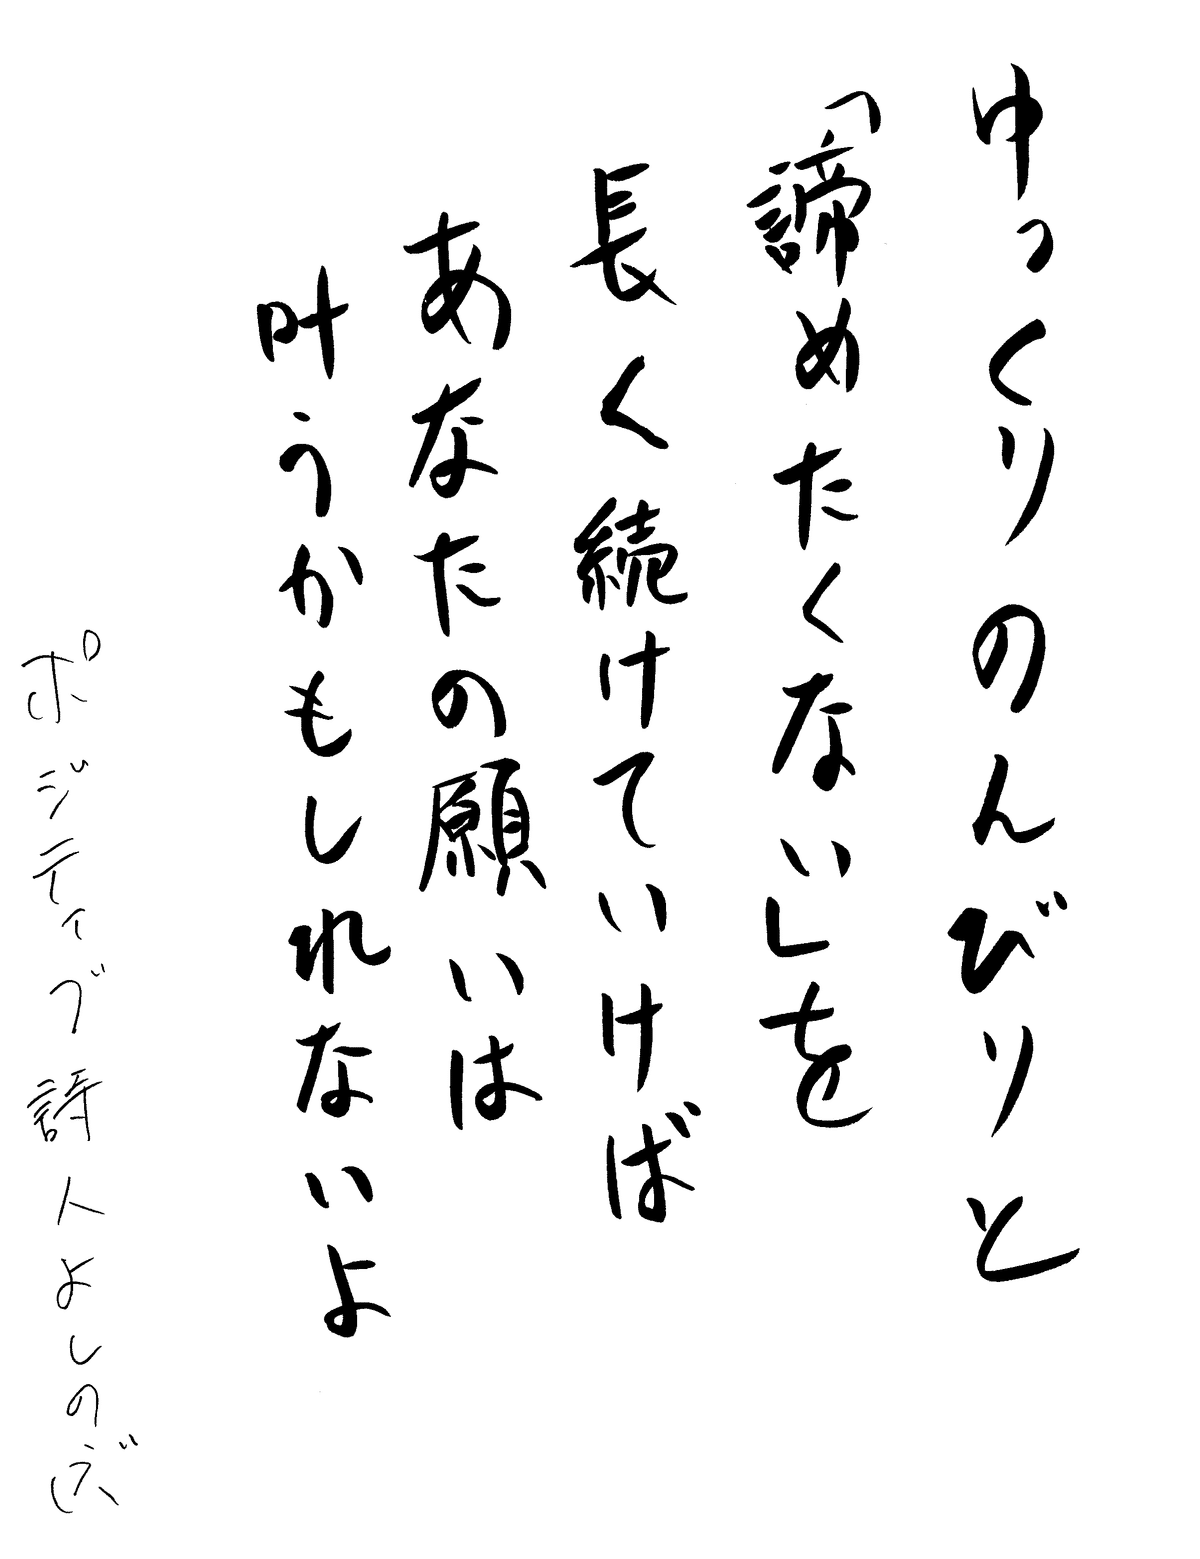 ゆっくりのんびりと
「諦めたくない」を
長く続けていけば
あなたの願いは
叶うかもしれないよ
ポジティブ詩人よしのぶ